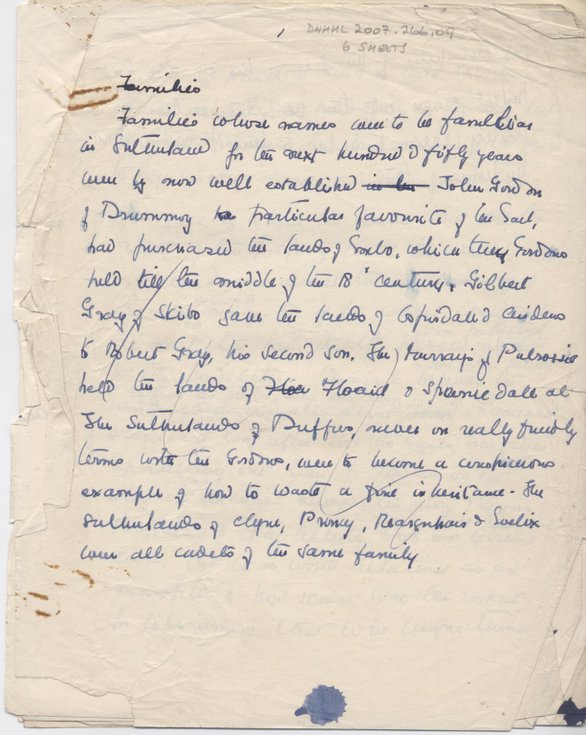 DNHHL 2007.266.09
6 SHEETS
Families
Families whose names were to be familiar
in Sutherland for the next hundred & fifty years
were by now well established in the John Gordon
of Drummoy a particular favourite of the Earl,
had purchased the lands of Embo, which the Gordons
held till the middle of the 18th century. Gilbert
Gray of Skibo gave the lands of Ospisdale & Creich
to Robert Gray, his second son. The Murrays of Pulrossie
held the lands of Floa Floaid & Spanziedale at
The Sutherlands of Duffus, never on really friendly
terms with the Gordons, were to become a conspicuous
example of how to waste a fine inheritance. The
Sutherlands of Clyne, Proncy, Rearquhar & Evelix
were all cadets of the same family